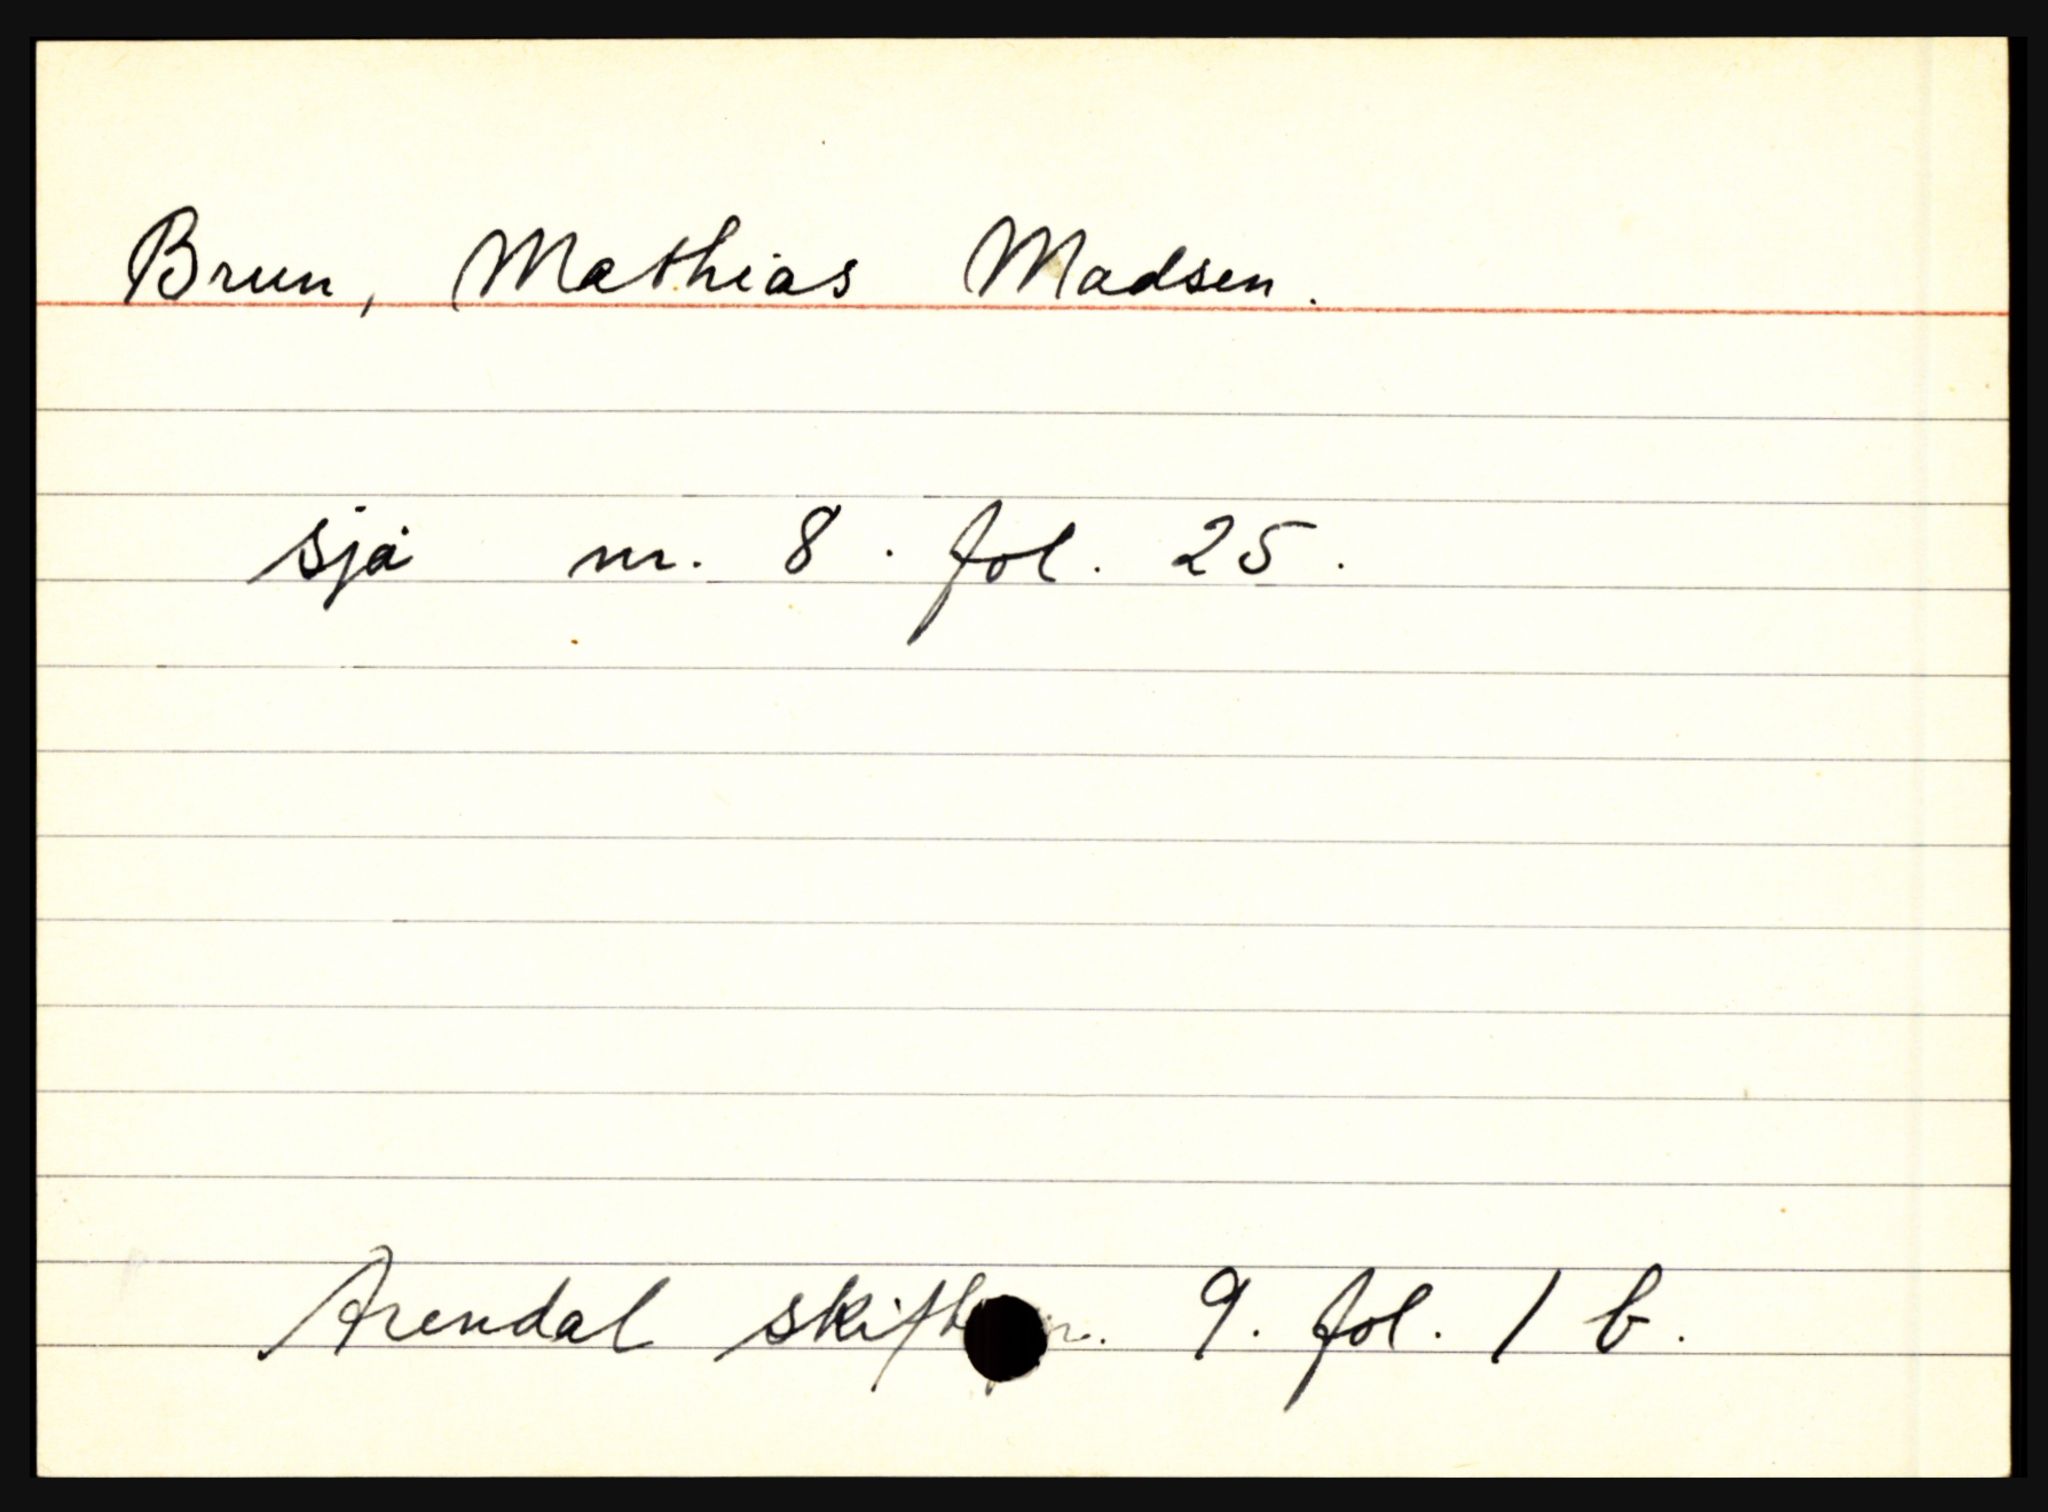 Brun, Mathias Madsen.
sjå nr. 8. fol. 25.
Arendal 9. fol. 1 b.